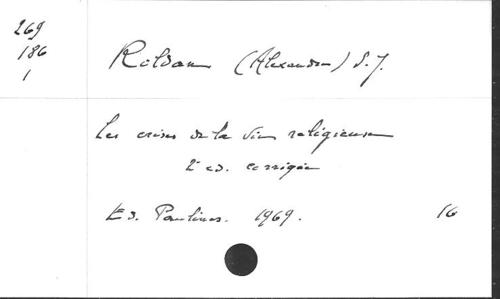 269
186
1
Roldan (Alexandre) S.J.
Les crises de la vie religieuse
2e ed. corrigée
Ed. Paulines. 1969. 16